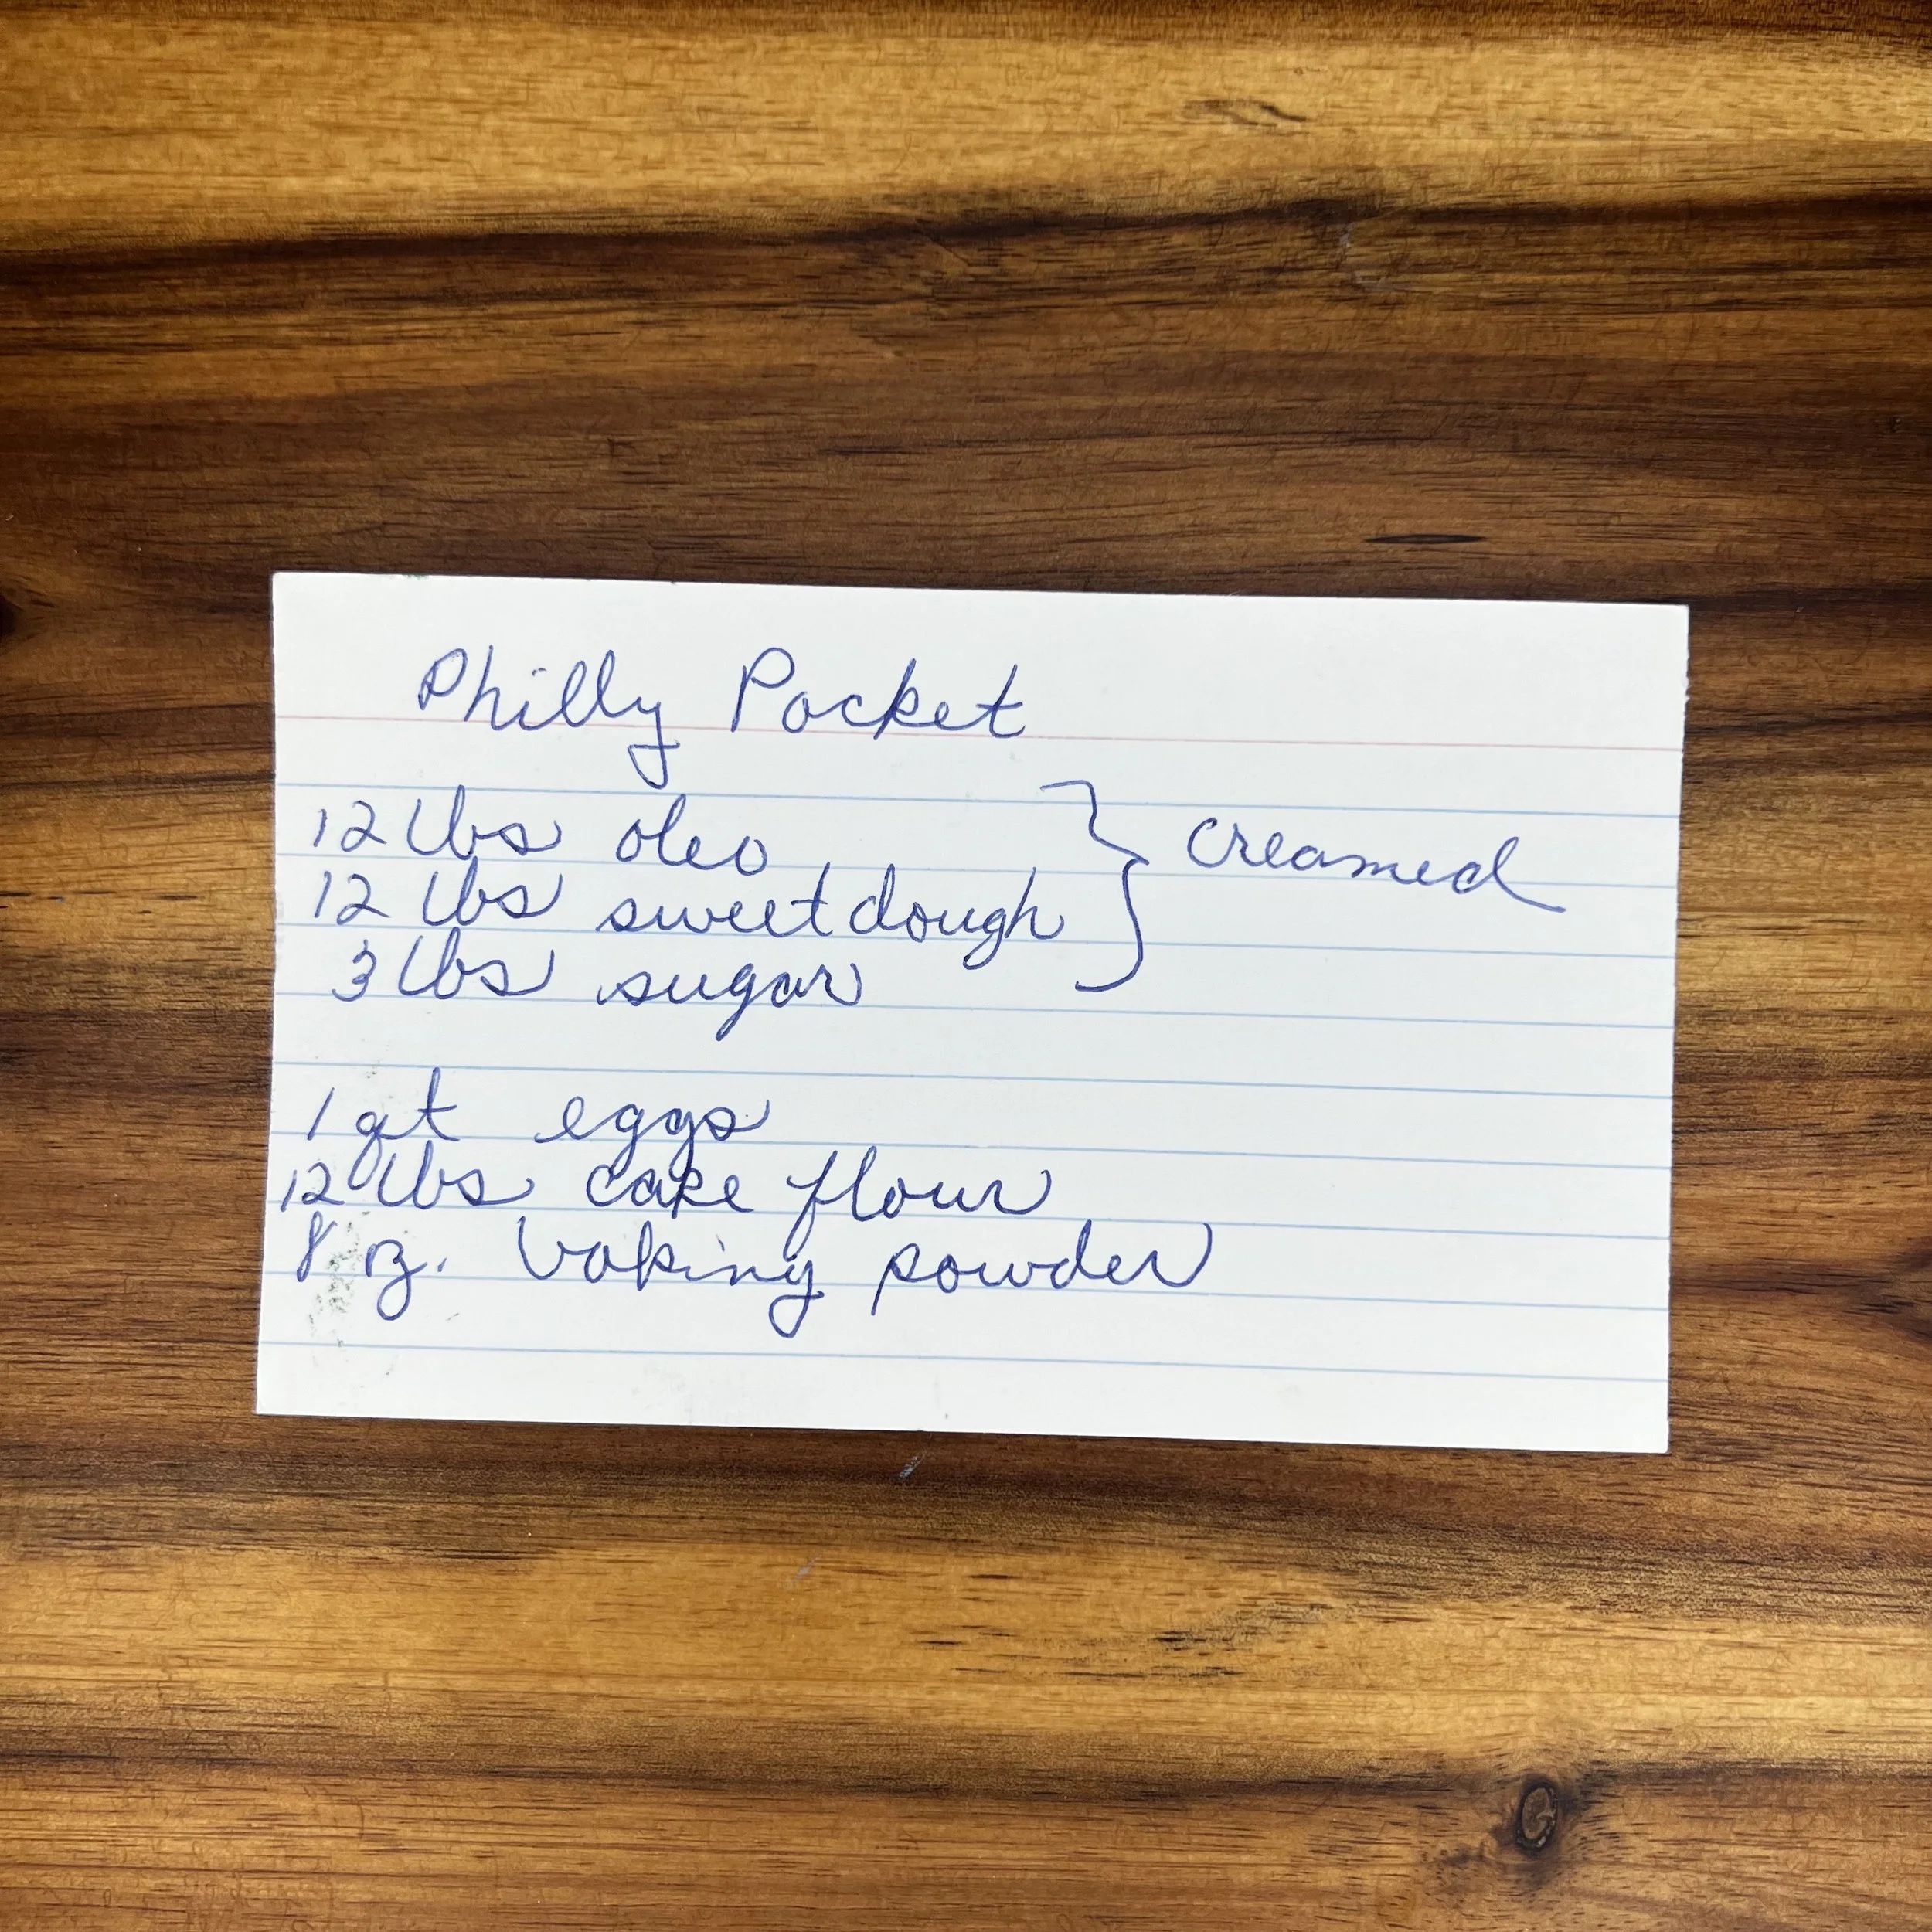 Philly Pocket
12 lbs oleo
12 lbs sweet dough
3 lbs sugar
creamed
1 qt eggs
12 lbs cake flour
8 oz. baking powder